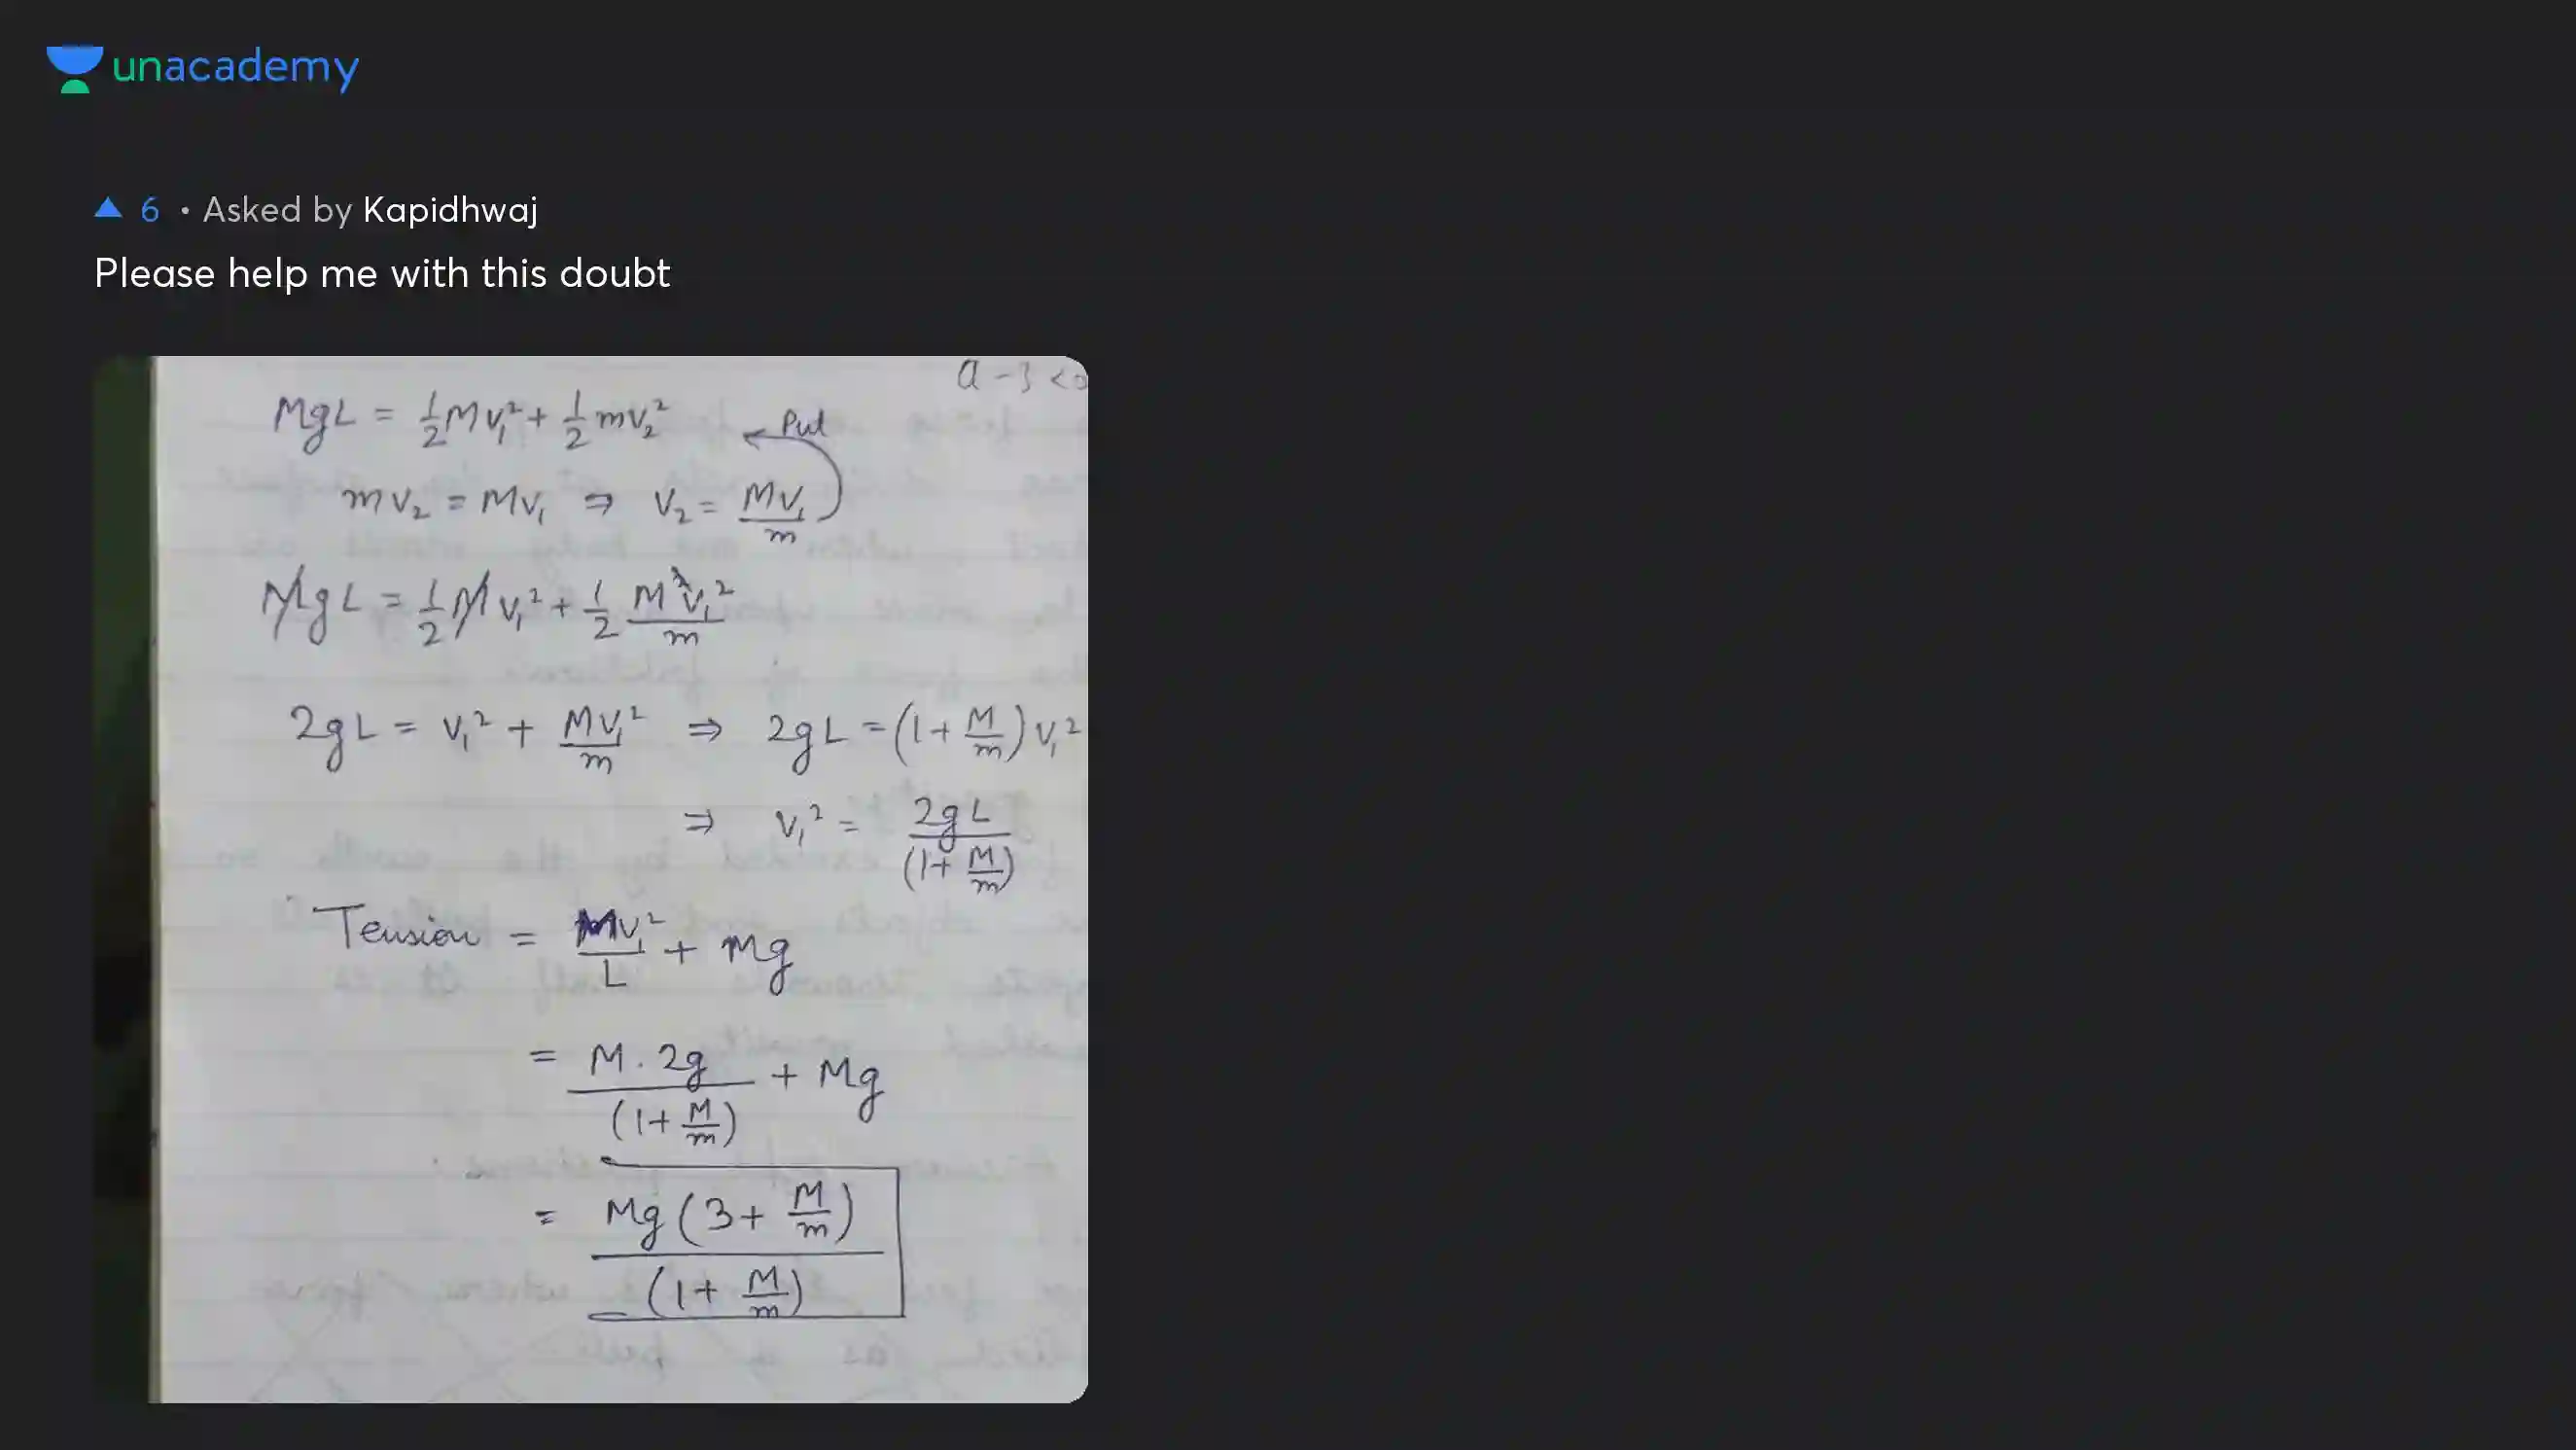 unacademy
6 • Asked by Kapidhwaj
Please help me with this doubt
a - 3 <
MgL = 1/2 Mv₁² + 1/2 mv₂²
Put
mv₂ = Mv₁ ⇒ v₂ = Mv₁/m
MgL = 1/2 Mv₁² + 1/2 M²v₁²/m
2gL = v₁² + Mv₁²/m ⇒ 2gL = (1 + M/m) v₁²
⇒ v₁² = 2gL/(1 + M/m)
Tension = Mv₁²/L + Mg
= M . 2g/(1 + M/m) + Mg
= Mg(3 + M/m)/(1 + M/m)